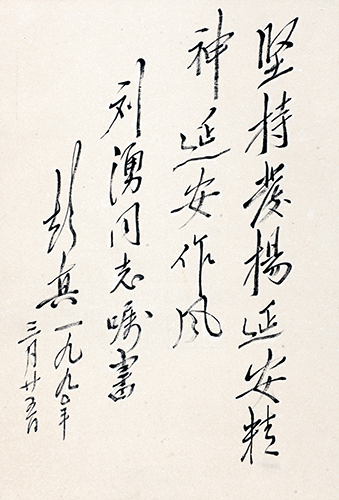 坚持发扬延安精
神延安作风
刘湧同志嘱书
彭真一九九〇年
三月廿五日